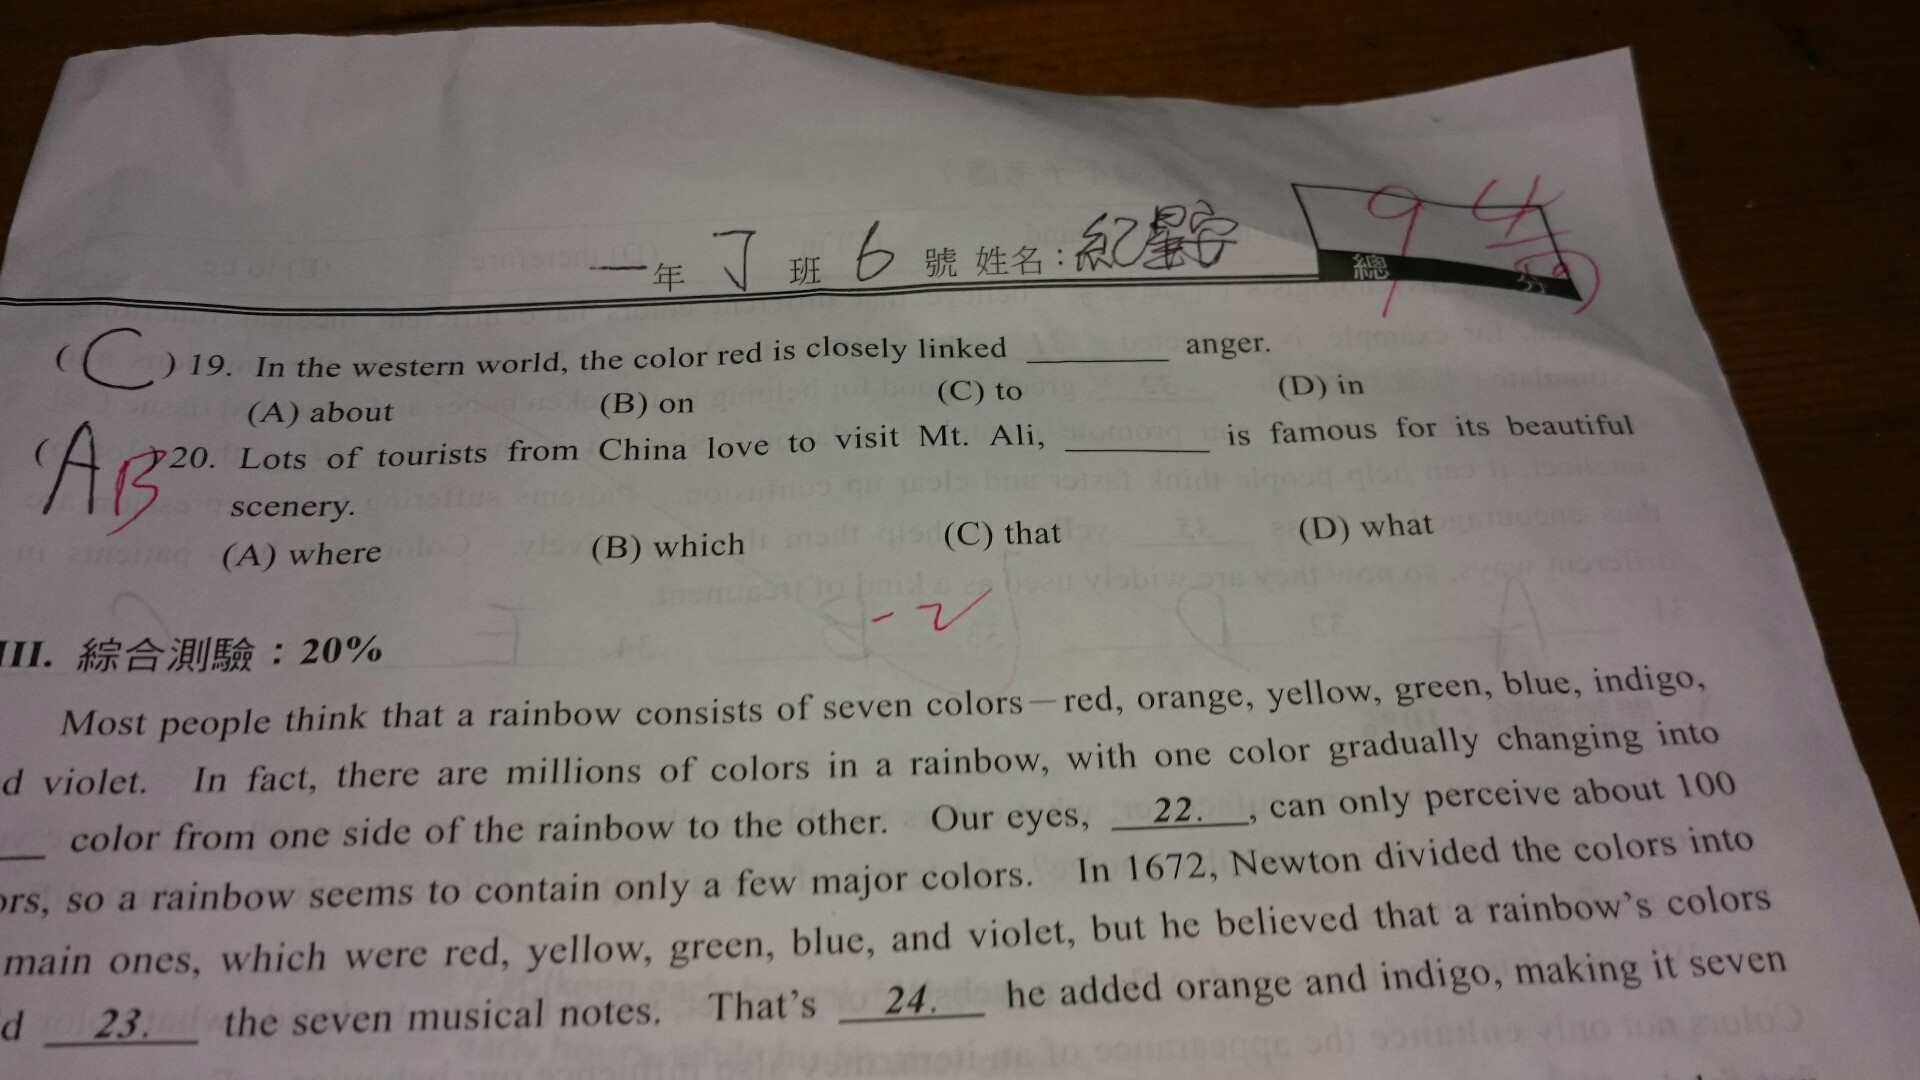 一年 丁 班 6 號 姓名:紀星宇 94
總分
(C) 19. In the western world, the color red is closely linked ________ anger.
(A) about (B) on (C) to (D) in
(A) B 20. Lots of tourists from China love to visit Mt. Ali, ________ is famous for its beautiful
scenery.
(A) where (B) which (C) that (D) what
-2
III. 綜合測驗：20%
Most people think that a rainbow consists of seven colors—red, orange, yellow, green, blue, indigo,
d violet. In fact, there are millions of colors in a rainbow, with one color gradually changing into
color from one side of the rainbow to the other. Our eyes, 22. , can only perceive about 100
ors, so a rainbow seems to contain only a few major colors. In 1672, Newton divided the colors into
main ones, which were red, yellow, green, blue, and violet, but he believed that a rainbow's colors
d 23. the seven musical notes. That's 24. he added orange and indigo, making it seven